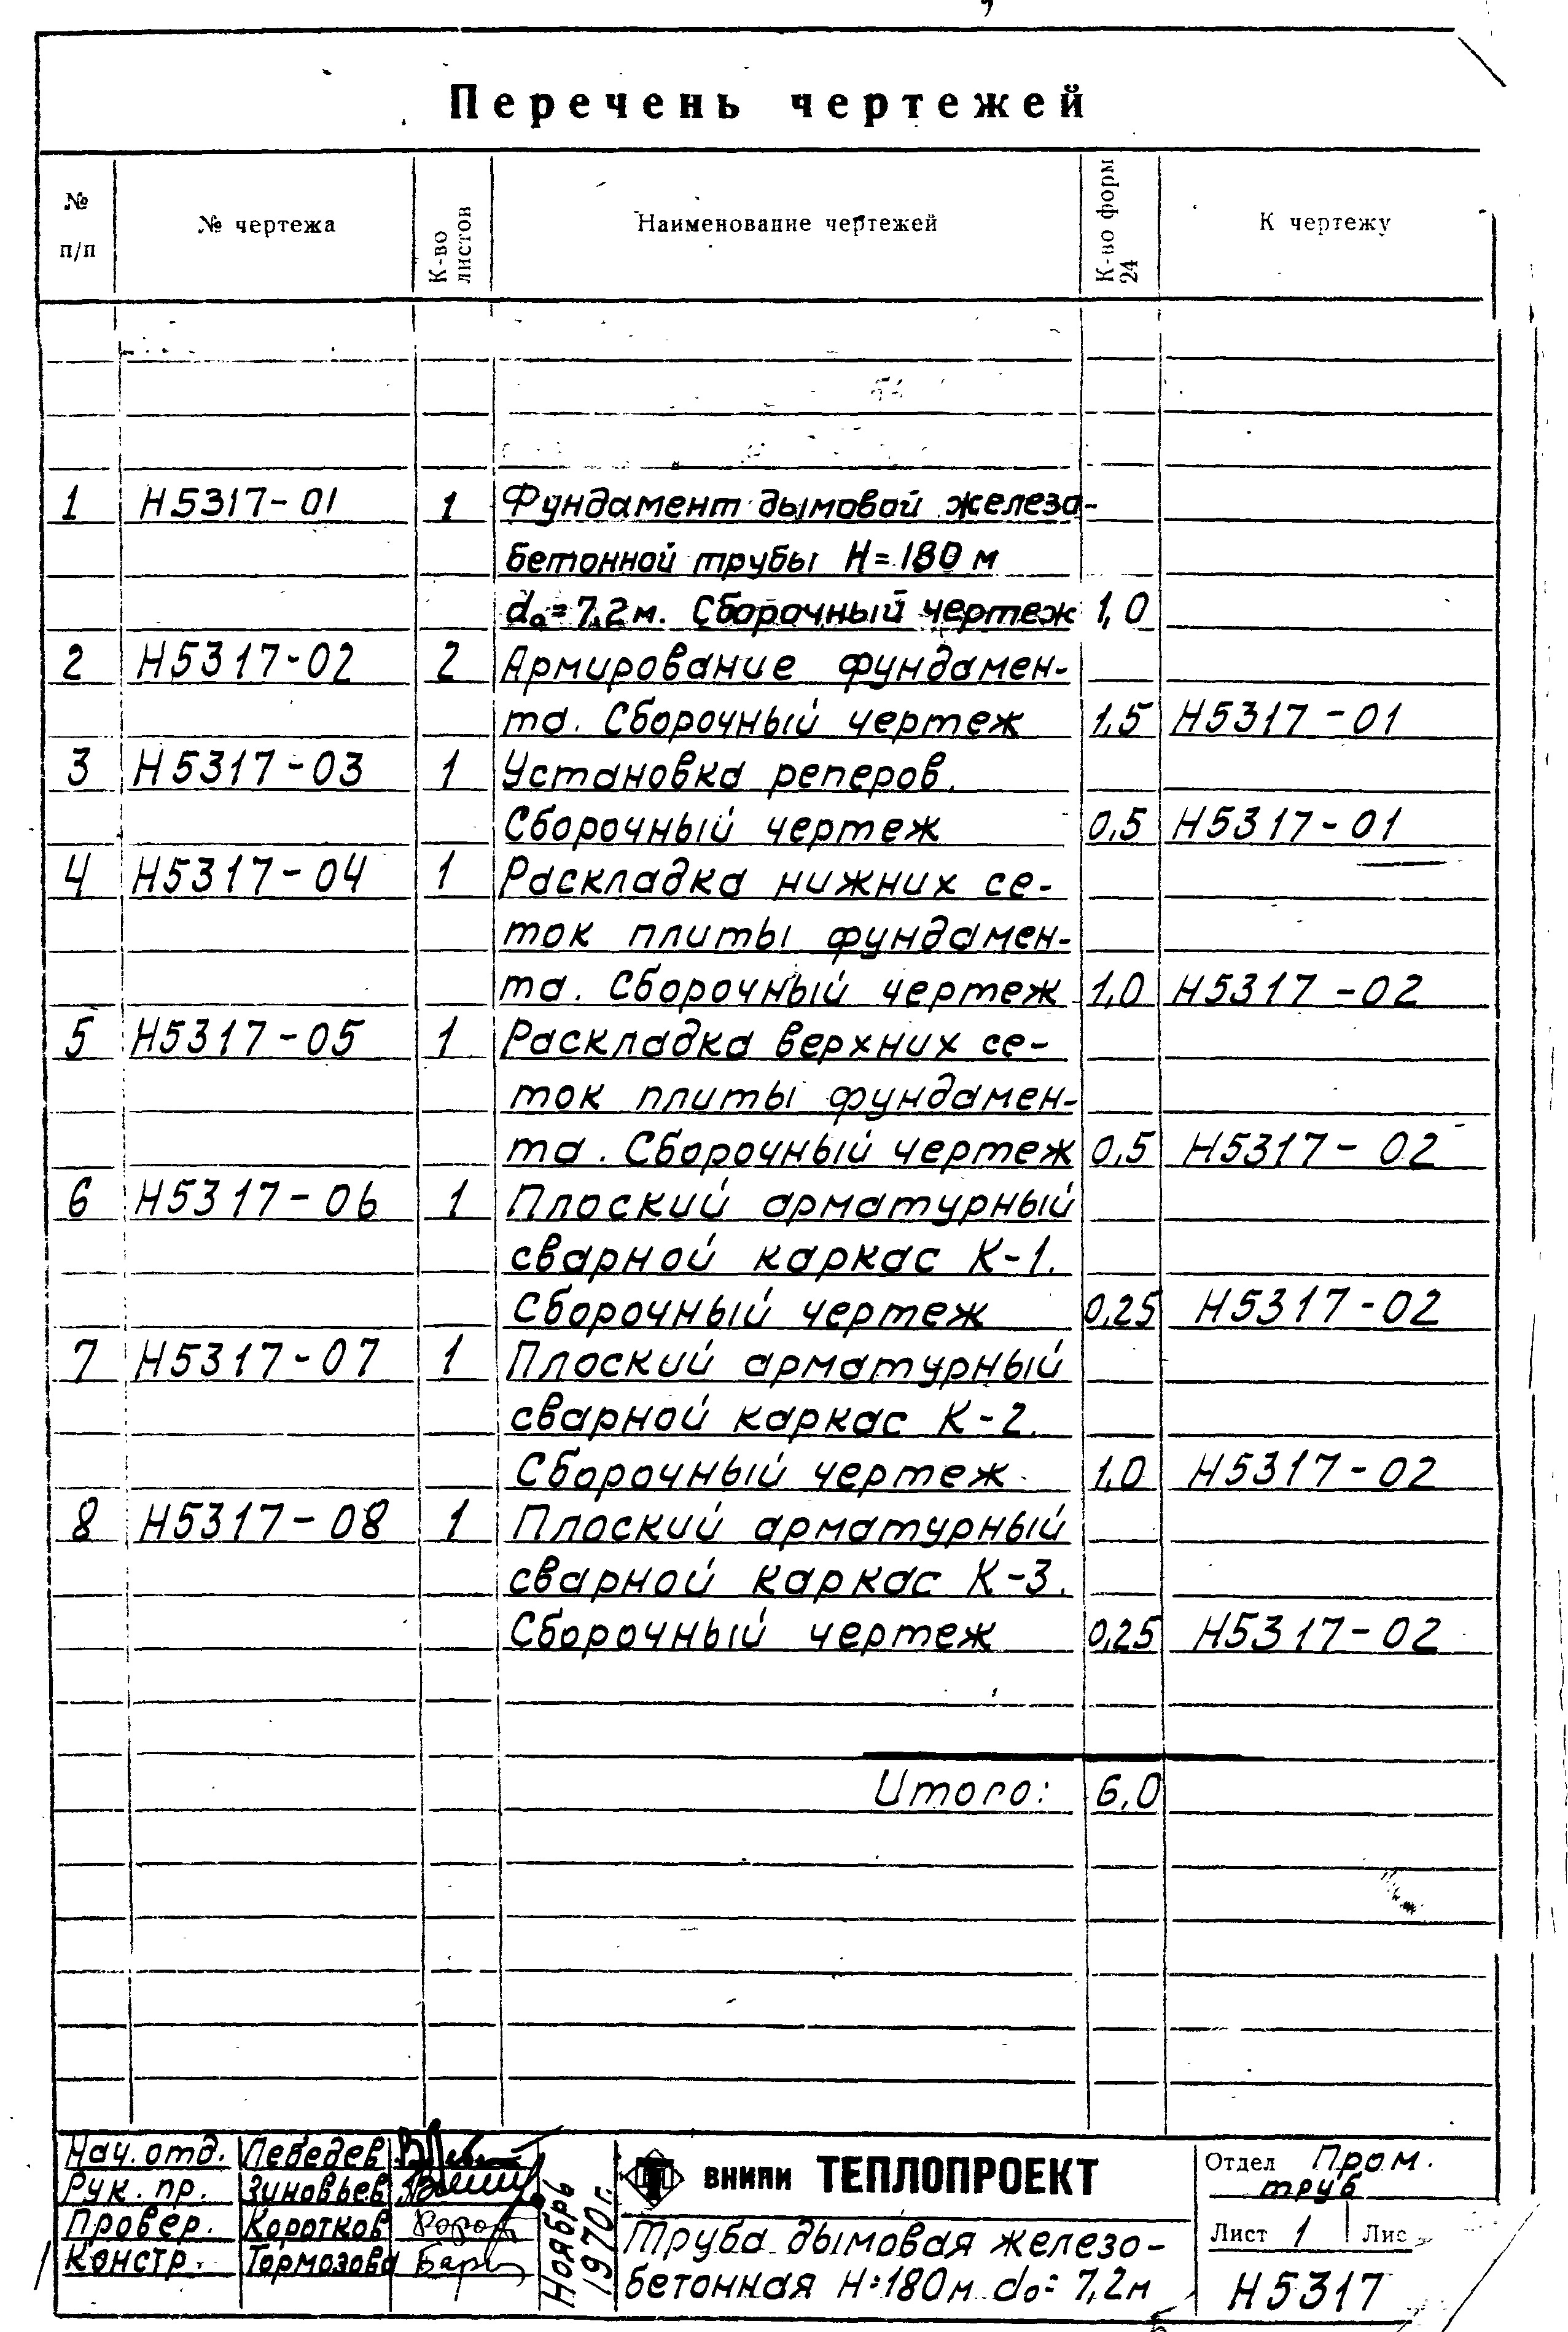 Перечень чертежей
№ п/п
№ чертежа
К-во листов
Наименование чертежей
К-во форм 24
К чертежу
1 Н5317-01 1 Фундамент дымовой железо-
бетонной трубы Н=180 м
dо=7,2м. Сборочный чертеж 1,0
2 Н5317-02 2 Армирование фундамен-
та. Сборочный чертеж 1,5 Н5317-01
3 Н5317-03 1 Установка реперов.
Сборочный чертеж 0,5 Н5317-01
4 Н5317-04 1 Раскладка нижних се-
ток плиты фундамен-
та. Сборочный чертеж 1,0 Н5317-02
5 Н5317-05 1 Раскладка верхних се-
ток плиты фундамен-
та. Сборочный чертеж 0,5 Н5317-02
6 Н5317-06 1 Плоский арматурный
сварной каркас К-1.
Сборочный чертеж 0,25 Н5317-02
7 Н5317-07 1 Плоский арматурный
сварной каркас К-2.
Сборочный чертеж 1,0 Н5317-02
8 Н5317-08 1 Плоский арматурный
сварной каркас К-3.
Сборочный чертеж 0,25 Н5317-02
Итого: 6,0
Нач. отд. Лебедев
Рук. пр. Зиновьев
Провер. Коротков
Констр. Тормозова
Ноябрь
1970г.
ВНИПИ ТЕПЛОПРОЕКТ
Труба дымовая железо-
бетонная Н=180м dо=7,2м
Отдел Пром.
труб
Лист 1 Лис
Н5317